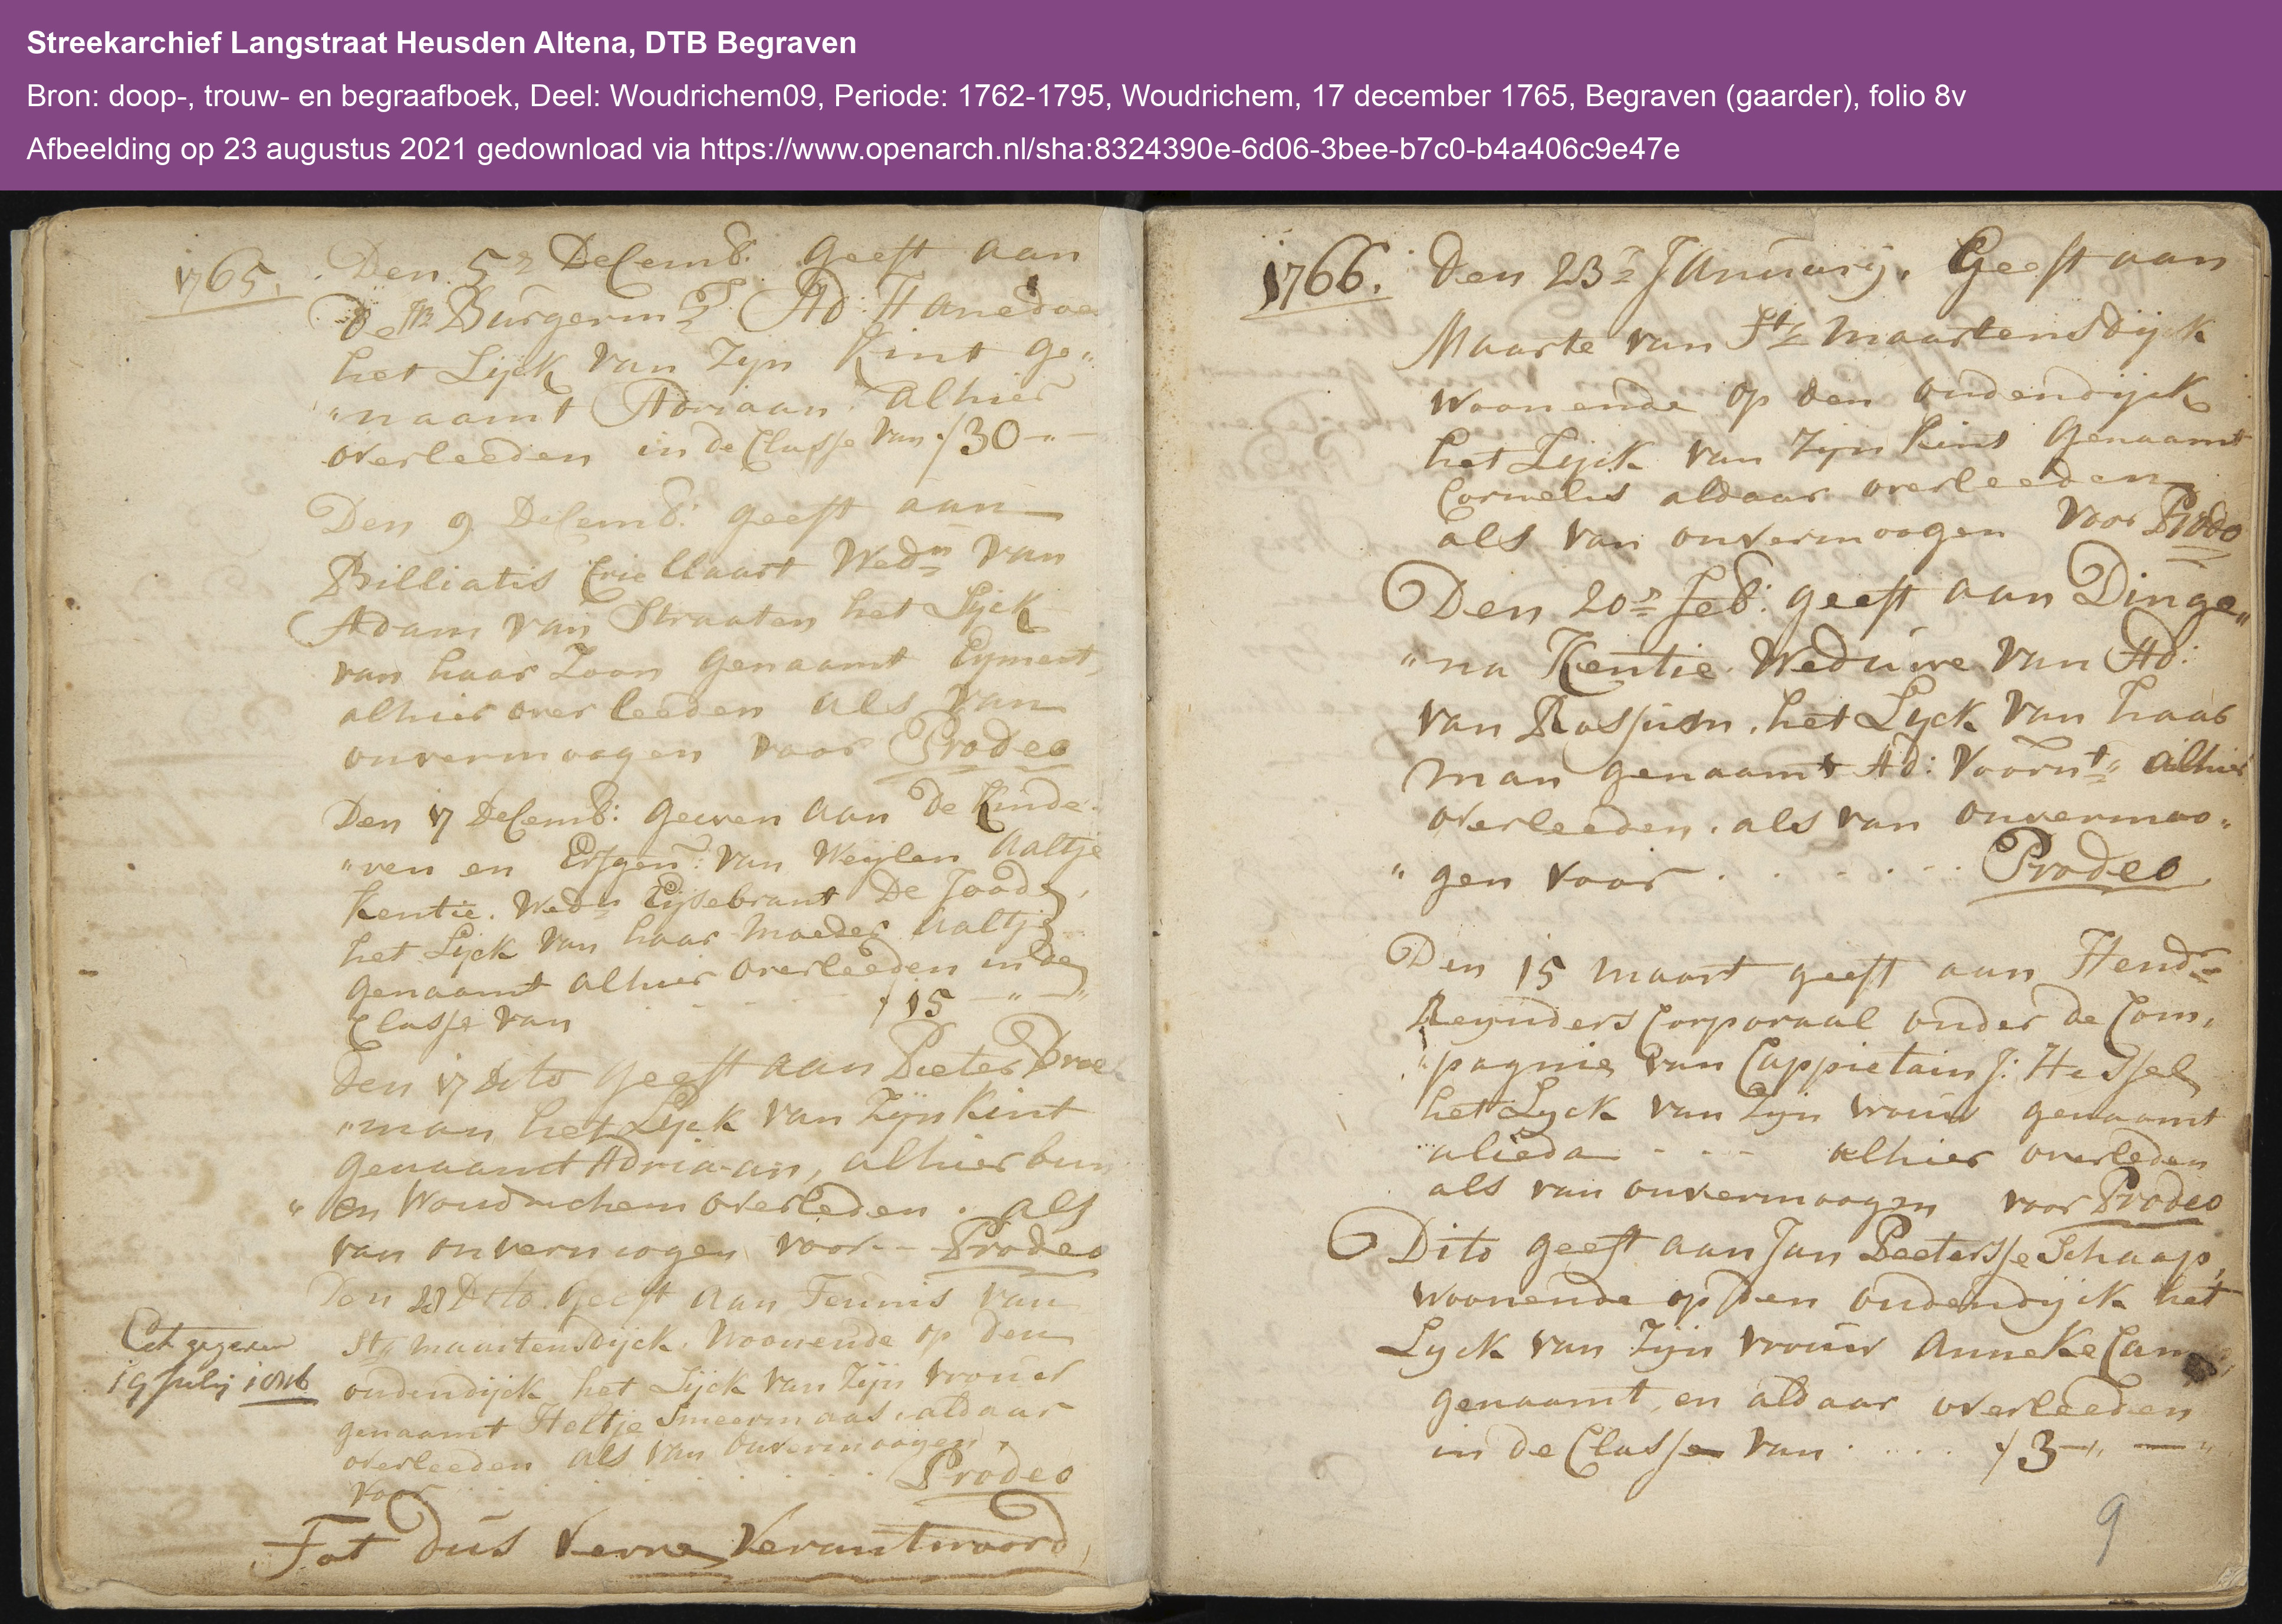 Streekarchief Langstraat Heusden Altena, DTB Begraven
Bron: doop-, trouw- en begraafboek, Deel: Woudrichem09, Periode: 1762-1795, Woudrichem, 17 december 1765, Begraven (gaarder), folio 8v
Afbeelding op 23 augustus 2021 gedownload via https://www.openarch.nl/sha:8324390e-6d06-3bee-b7c0-b4a406c9e47e
1765. Den 5e Decemb: geeft aan
de Hr Burgermr Ad: Hanedoe
het Lijck van Zyn Kint ge„
„naamt Adriaan alhier
overleeden in de Classe van ƒ 30 - „ -
Den 9 Decemb: geeft aan
Billiatis Wedn van
Adam van Straaten het Lyck
van haar Zoon genaamt Eymert
alhier overleeden als van
onvermoogen voor Prodeo
Den 17 Decemb: geeven aan de Kinde
„ren en Erfgen: van Weylen Aaltje
Kentie. Wedn Eijsebrant De Joode,
het Lyck van haar moeder Aaltje
genaamt alhier overleeden in de
Classe van ƒ 15 - „ - „
Den 17 dito geeft aan Pieter Broe
„man het Lyck van Zyn Kint
genaamt Adria-an, alhier bin
„en Woudrichem overleden. als
van onvermogen voor - - Prodeo
Den Dito. Geeft aan Teunis van
St maartensdyck. Woonende op den
oudendijck het Lijck van Zijn vrouw
genaamt Heltje Smeermaas. aldaar
overleeden als van onvermoogen,
voor Prodeo
Cet gegeven
19 July
Tot dus verre Verantwoord
1766. Den 23e January. Geeft aan
Maarte van St maartensdyck
woonende op den oudendijck
het Lijck van Zyn Kint genaamt
Cornelis aldaar overleeden
als van onvermoogen voor Prodeo
Den 20e Feb: geeft aan Dinge„
„na Kentie Weduwe van Ad:
van Rossum. het Lyck van haar
man genaamt Ad: Voornt alhier
overleeden. als van onvermoo„
„gen voor . . . . . . Prodeo
Den 15 maart geeft aan Hendr
Reynders Corporaal onder de Com„
„pagnie van Cappietain J: Hessel
het Lyck van Zyn vrouw genaamt
alieda - - - alhier overleden
als van onvermoogen voor Prodeo
Dito geeft aan Jan Peetersse Schaap,
woonende op den oudendijck het
Lyck van Zijn vrouw Anneke
genaamt, en aldaar overleeden
in de Classe van . . . . ƒ 3 - „ - „
9